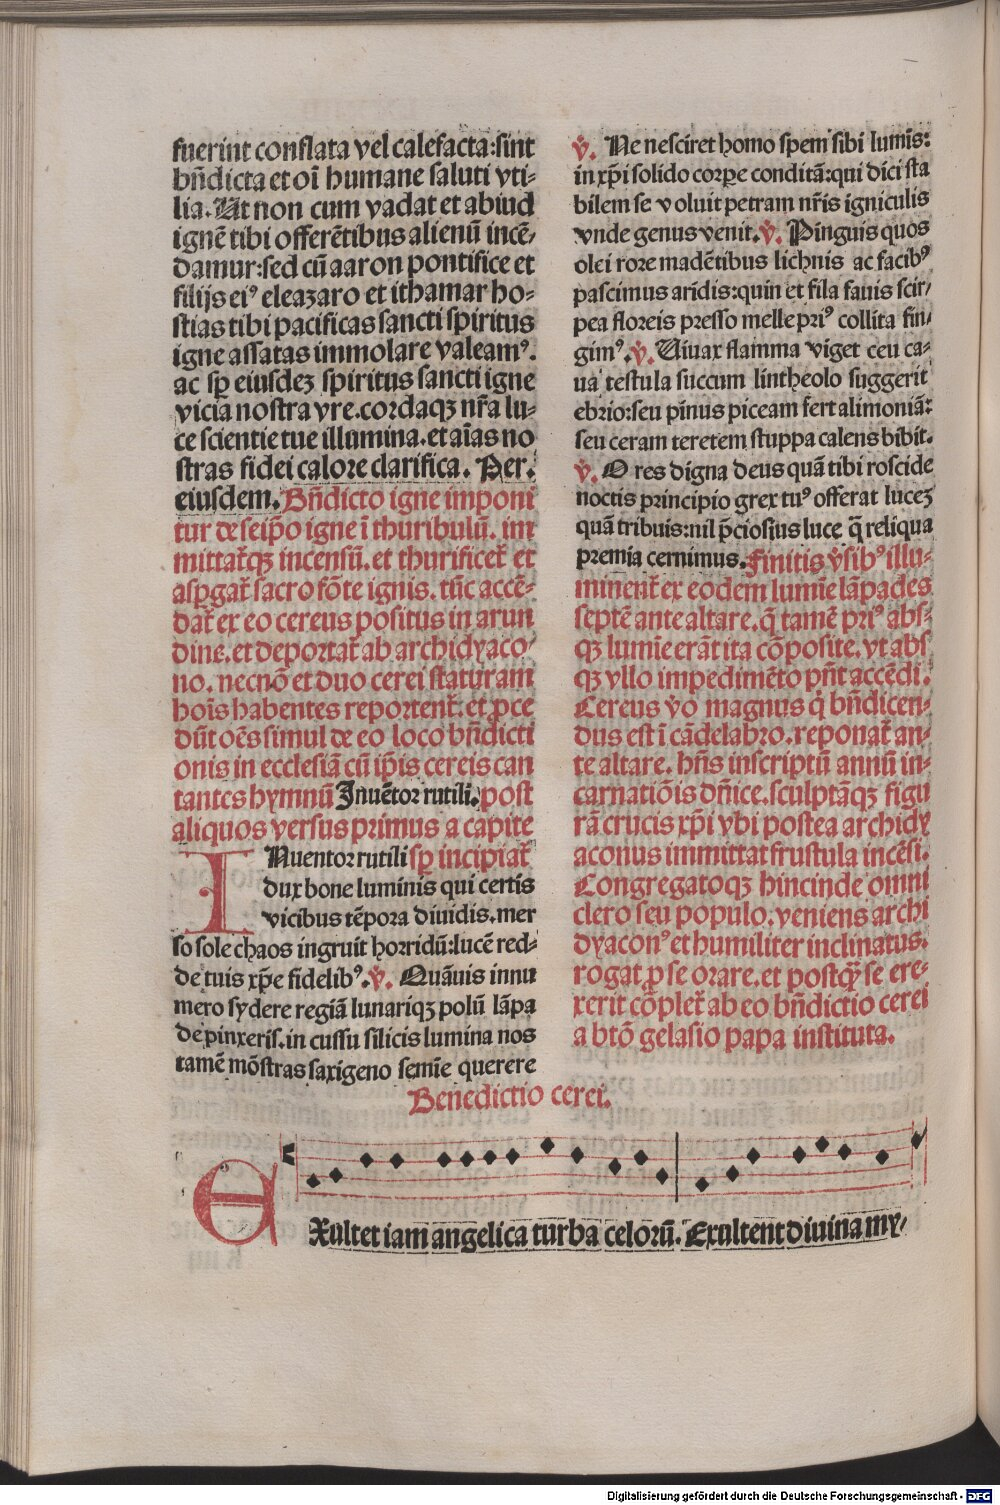 fuerint conflata vel calefacta:sint
bn̄dicta et oī humane saluti vti-
lia. Ut non cum vadat et abiud
ignē tibi offerētibus alienū incē-
damur:sed cū aaron pontifice et
filijs eiꝰ eleazaro et ithamar ho-
stias tibi pacificas sancti spiritus
igne assatas immolare valeamꝰ.
ac sp̄ eiusdeꝫ spiritus sancti igne
vicia nostra vre.cordaqꝫ nr̄a lu-
ce scientie tue illumina.et aīas no
stras fidei calore clarifica. Per.
eiusdem. Bn̄dicto igne imponi
tur de seip̄o igne ī thuribulū. im
mittat̄qꝫ incensū.et thurificet̄ et
asp̄gat̄ sacro fōte ignis. tūc accē-
dat̄ ex eo cereus positus in arun
dine.et deportat̄ ab archidyaco-
no. necnō et duo cerei staturam
hoīs habentes reportent̄.et ꝓce
dūt oēs simul de eo loco bn̄dicti
onis in ecclesiā cū ip̄is cereis can
tantes hymnū Inuētor rutili. post
aliquos versus primus a capite
INuentor rutili sp̄ incipiat̄
dux bone luminis qui certis
vicibus tēpora diuidis.mer
so sole chaos ingruit horridū:lucē red-
de tuis xp̄e fidelibꝰ. v̄. Quāuis innu
mero sydere regiā lunariqꝫ polū lāpa
de pinxeris.in cussu silicis lumina nos
tamē mōstras saxigeno semīe querere
v̄. Ne nesciret homo spem sibi lumīs:
in xp̄i solido corꝑe conditā:qui dici sta
bilem se voluit petram nr̄is igniculis
vnde genus venit. v̄. Pinguis quos
olei rore madētibus lichnis ac facibꝰ
pascimus aridis:quin et fila fauis scir-
pea floreis presso melle priꝰ collita fin-
gimꝰ. v̄. Uiuax flamma viget ceu ca-
ua testula succum lintheolo suggerit
ebrio:seu pinus piceam fert alimoniā:
seu ceram teretem stuppa calens bibit.
v̄. O res digna deus quā tibi roscide
noctis principio grex tuꝰ offerat luceꝫ
quā tribuis:nil p̄ciosius luce q̄ reliqua
premia cernimus. Finitis v̄sibꝰ illu-
minent̄ ex eodem lumīe lāpades
septē ante altare. q̄ tamē priꝰ abs-
qꝫ lumīe erāt ita cōposite.vt abs
qꝫ vllo impedimēto pn̄t accēdi.
Cereus v̄o magnus q̇ bn̄dicen-
dus est ī cādelabro.reponat̄ an-
te altare. hn̄s inscriptū annū in-
carnatiōis dn̄ice.sculptāqꝫ figu
rā crucis xp̄i vbi postea archidy
aconus immittat frustula incēsi.
Congregatoqꝫ hincinde omni
clero seu populo.veniens archi
dyaconꝰ et humiliter inclinatus.
rogat ꝓ se orare.et postqꝫ̄ se ere-
xerit cōplet̄ ab eo bn̄dictio cerei
a btō gelasio papa instituta.
Benedictio cerei.
EXultet iam angelica turba celorū. Exultent diuina my-
Digitalisierung gefördert durch die Deutsche Forschungsgemeinschaft - DFG